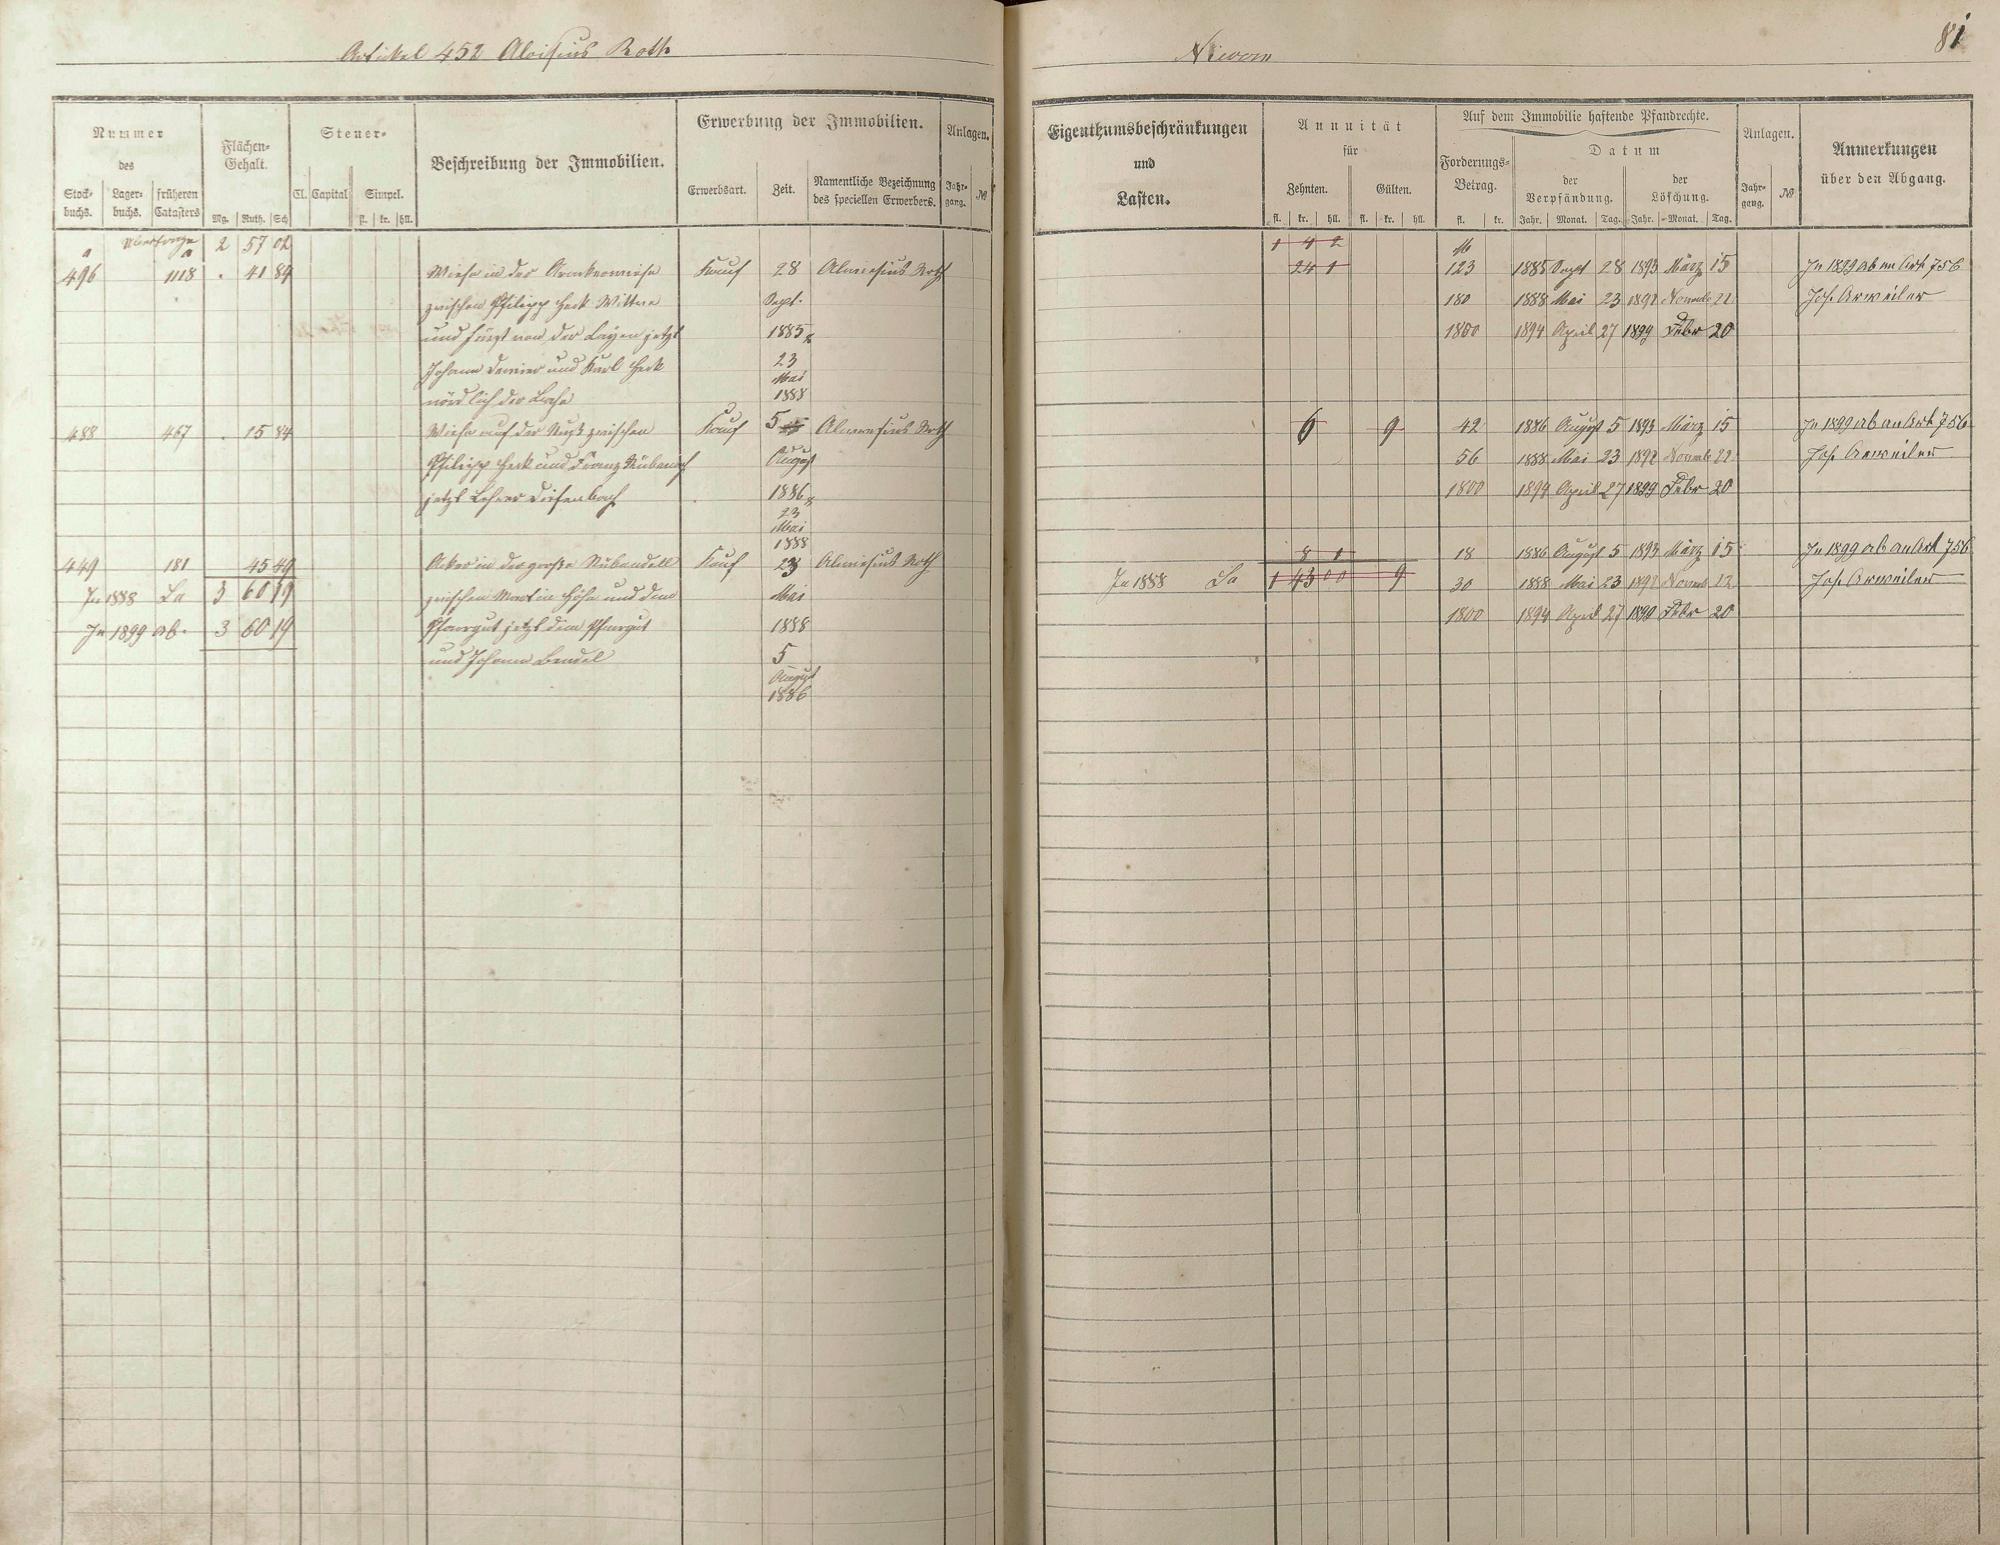 Artikel 452 Aloisius Roth
Nummer
des
Stock-
buchs.
Lager-
buchs.
früheren
Catasters
Flächen-
Gehalt.
Mg. Ruth. Sch
Steuer-
Cl. Capital Simpel.
fl. kr. hll.
Beschreibung der Immobilien.
Erwerbung der Immobilien.
Erwerbsart. Zeit.
Namentliche Bezeichnung
des speciellen Erwerbers.
Anlagen.
Jahr-
gang.
№
Übertrage 2 57 02
a a
496 1118 . 41 84 Wiese in der zwischen Philipp Heck Wittwe
und Fürst von der Layen jetzt
Johann und Karl Heck
nördlich der
Kauf 28 Sept. 1885
23 Mai 1888
Roth
488 467 . 15 84 Wiese auf der zwischen
Philipp Heck und Franz
jetzt Lehrer
Kauf 5 August 1886
23 Mai 1888
Roth
449 181 45 49 Acker in der große
zwischen Martin Höhn und dem
Pfarrgut jetzt dem Pfarrgut
und Johann Bendel
Kauf 23 Mai 1888
5 August 1886
Roth
In 1888 Sa 3 60 19
In 1899 ab. 3 60 19
81
Eigenthumsbeschränkungen
und
Lasten.
Annuität
für
Zehnten. Gülten.
fl. kr. hll. fl. kr. hll.
Auf dem Immobilie haftende Pfandrechte.
Forderungs-
Betrag.
fl. kr.
Datum
der
Verpfändung.
der
Löschung.
Jahr. Monat. Tag. Jahr. Monat. Tag.
Anlagen.
Jahr-
gang.
№
Anmerkungen
über den Abgang.
1 4 2 M
24 1 123 1885 Sept 28 1893 März 15 In 1899 ab an Art. 756
180 1888 Mai 23 1892 Novmb 22 Jos. Arweiler
1800 1894 April 27 1899 Febr 20
6 9 42 1886 August 5 1893 März 15 In 1899 ab an Art 756
56 1888 Mai 23 1892 Novmb 22 Jos. Arweiler
1800 1894 April 27 1899 Febr 20
8 1 18 1886 August 5 1893 März 15 In 1899 ab an Art 756
In 1888 Sa 1 43 00 9 30 1888 Mai 23 1892 Novmb 22 Jos. Arweiler
1800 1894 April 27 1899 Febr 20